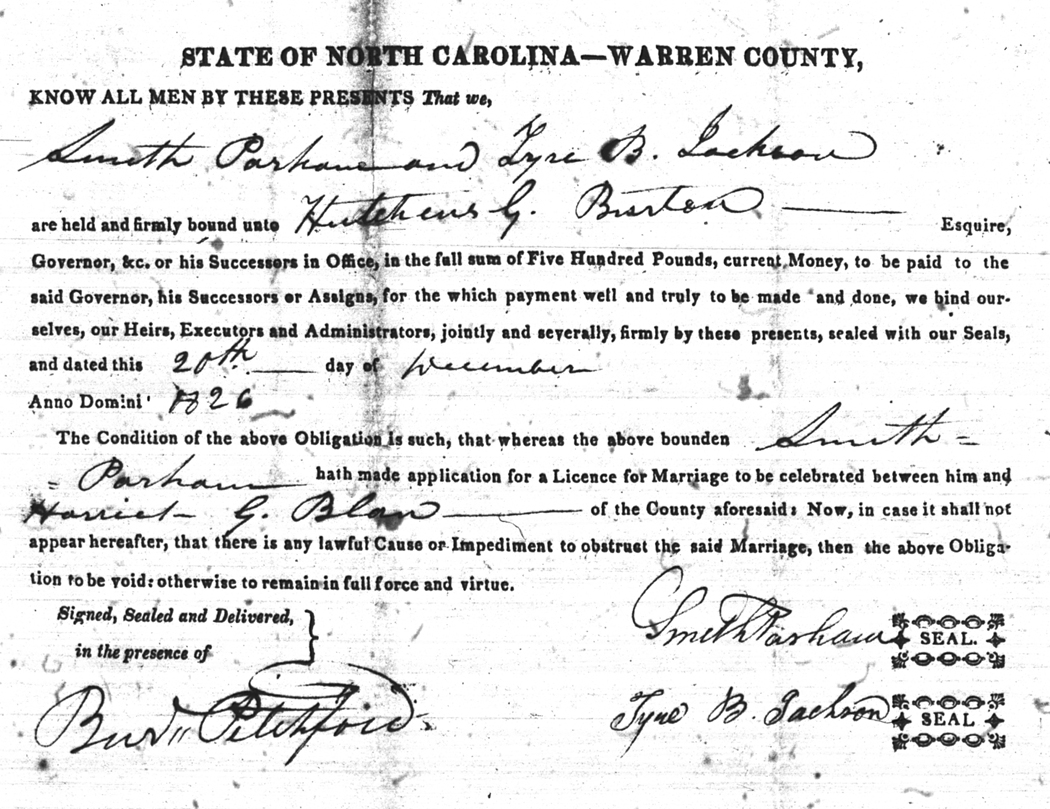 STATE OF NORTH CAROLINA—WARREN COUNTY,
KNOW ALL MEN BY THESE PRESENTS That we,
Smith Parham and Tyre B. Jackson
are held and firmly bound unto Hutchens G. Burton Esquire,
Governor, &c. or his Successors in Office, in the full sum of Five Hundred Pounds, current Money, to be paid to the
said Governor, his Successors or Assigns, for the which payment well and truly to be made and done, we bind our-
selves, our Heirs, Executors and Administrators, jointly and severally, firmly by these presents, sealed with our Seals,
and dated this 20th day of December
Anno Domini 1826
The Condition of the above Obligation is such, that whereas the above bounden Smith
Parham hath made application for a Licence for Marriage to be celebrated between him and
Harriet G. Blan of the County aforesaid: Now, in case it shall not
appear hereafter, that there is any lawful Cause or Impediment to obstruct the said Marriage, then the above Obliga-
tion to be void: otherwise to remain in full force and virtue.
Signed, Sealed and Delivered,
in the presence of
Smith Parham SEAL.
Pitchford
Tyre B. Jackson SEAL